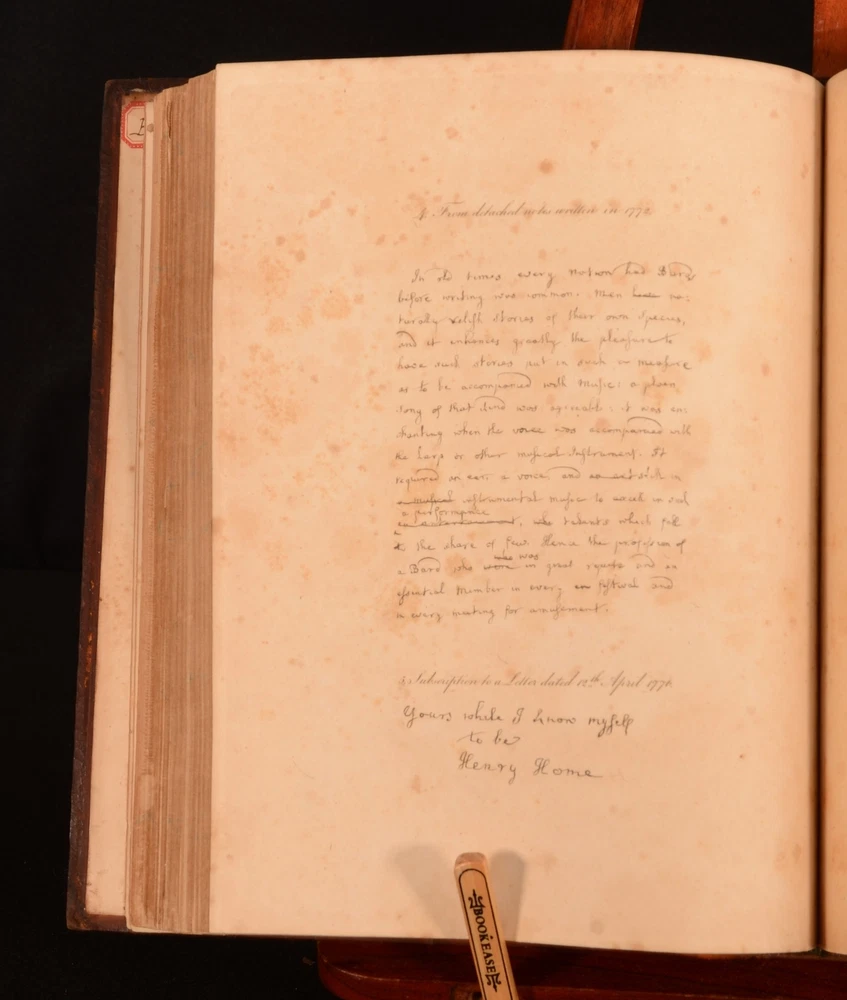 4. From detached notes written in 1772.
In old times every nation had Bards
before writing was common. Men have na:
turaly relish stories of their own species,
and it enhances greatly the pleasure to
have such stories put in such a measure
as to be accompanied with Musick: a plain
song of that kind was agreeable: it was en:
chanting when the voice was accompanied with
the harp or other musical Instrument. It
required an ear, a voice, and skill in
a musical instrumental music to excell in such
a performance
, talents which fall
to the share of few. Hence the profession of
who was
a Bard who were in great repute and an
essential Member in every en festival and
in every meeting for amusement.
5. Subscription to a Letter dated 12th April 1776.
Yours while I know myself
to be
Henry Home
BOOKEASE